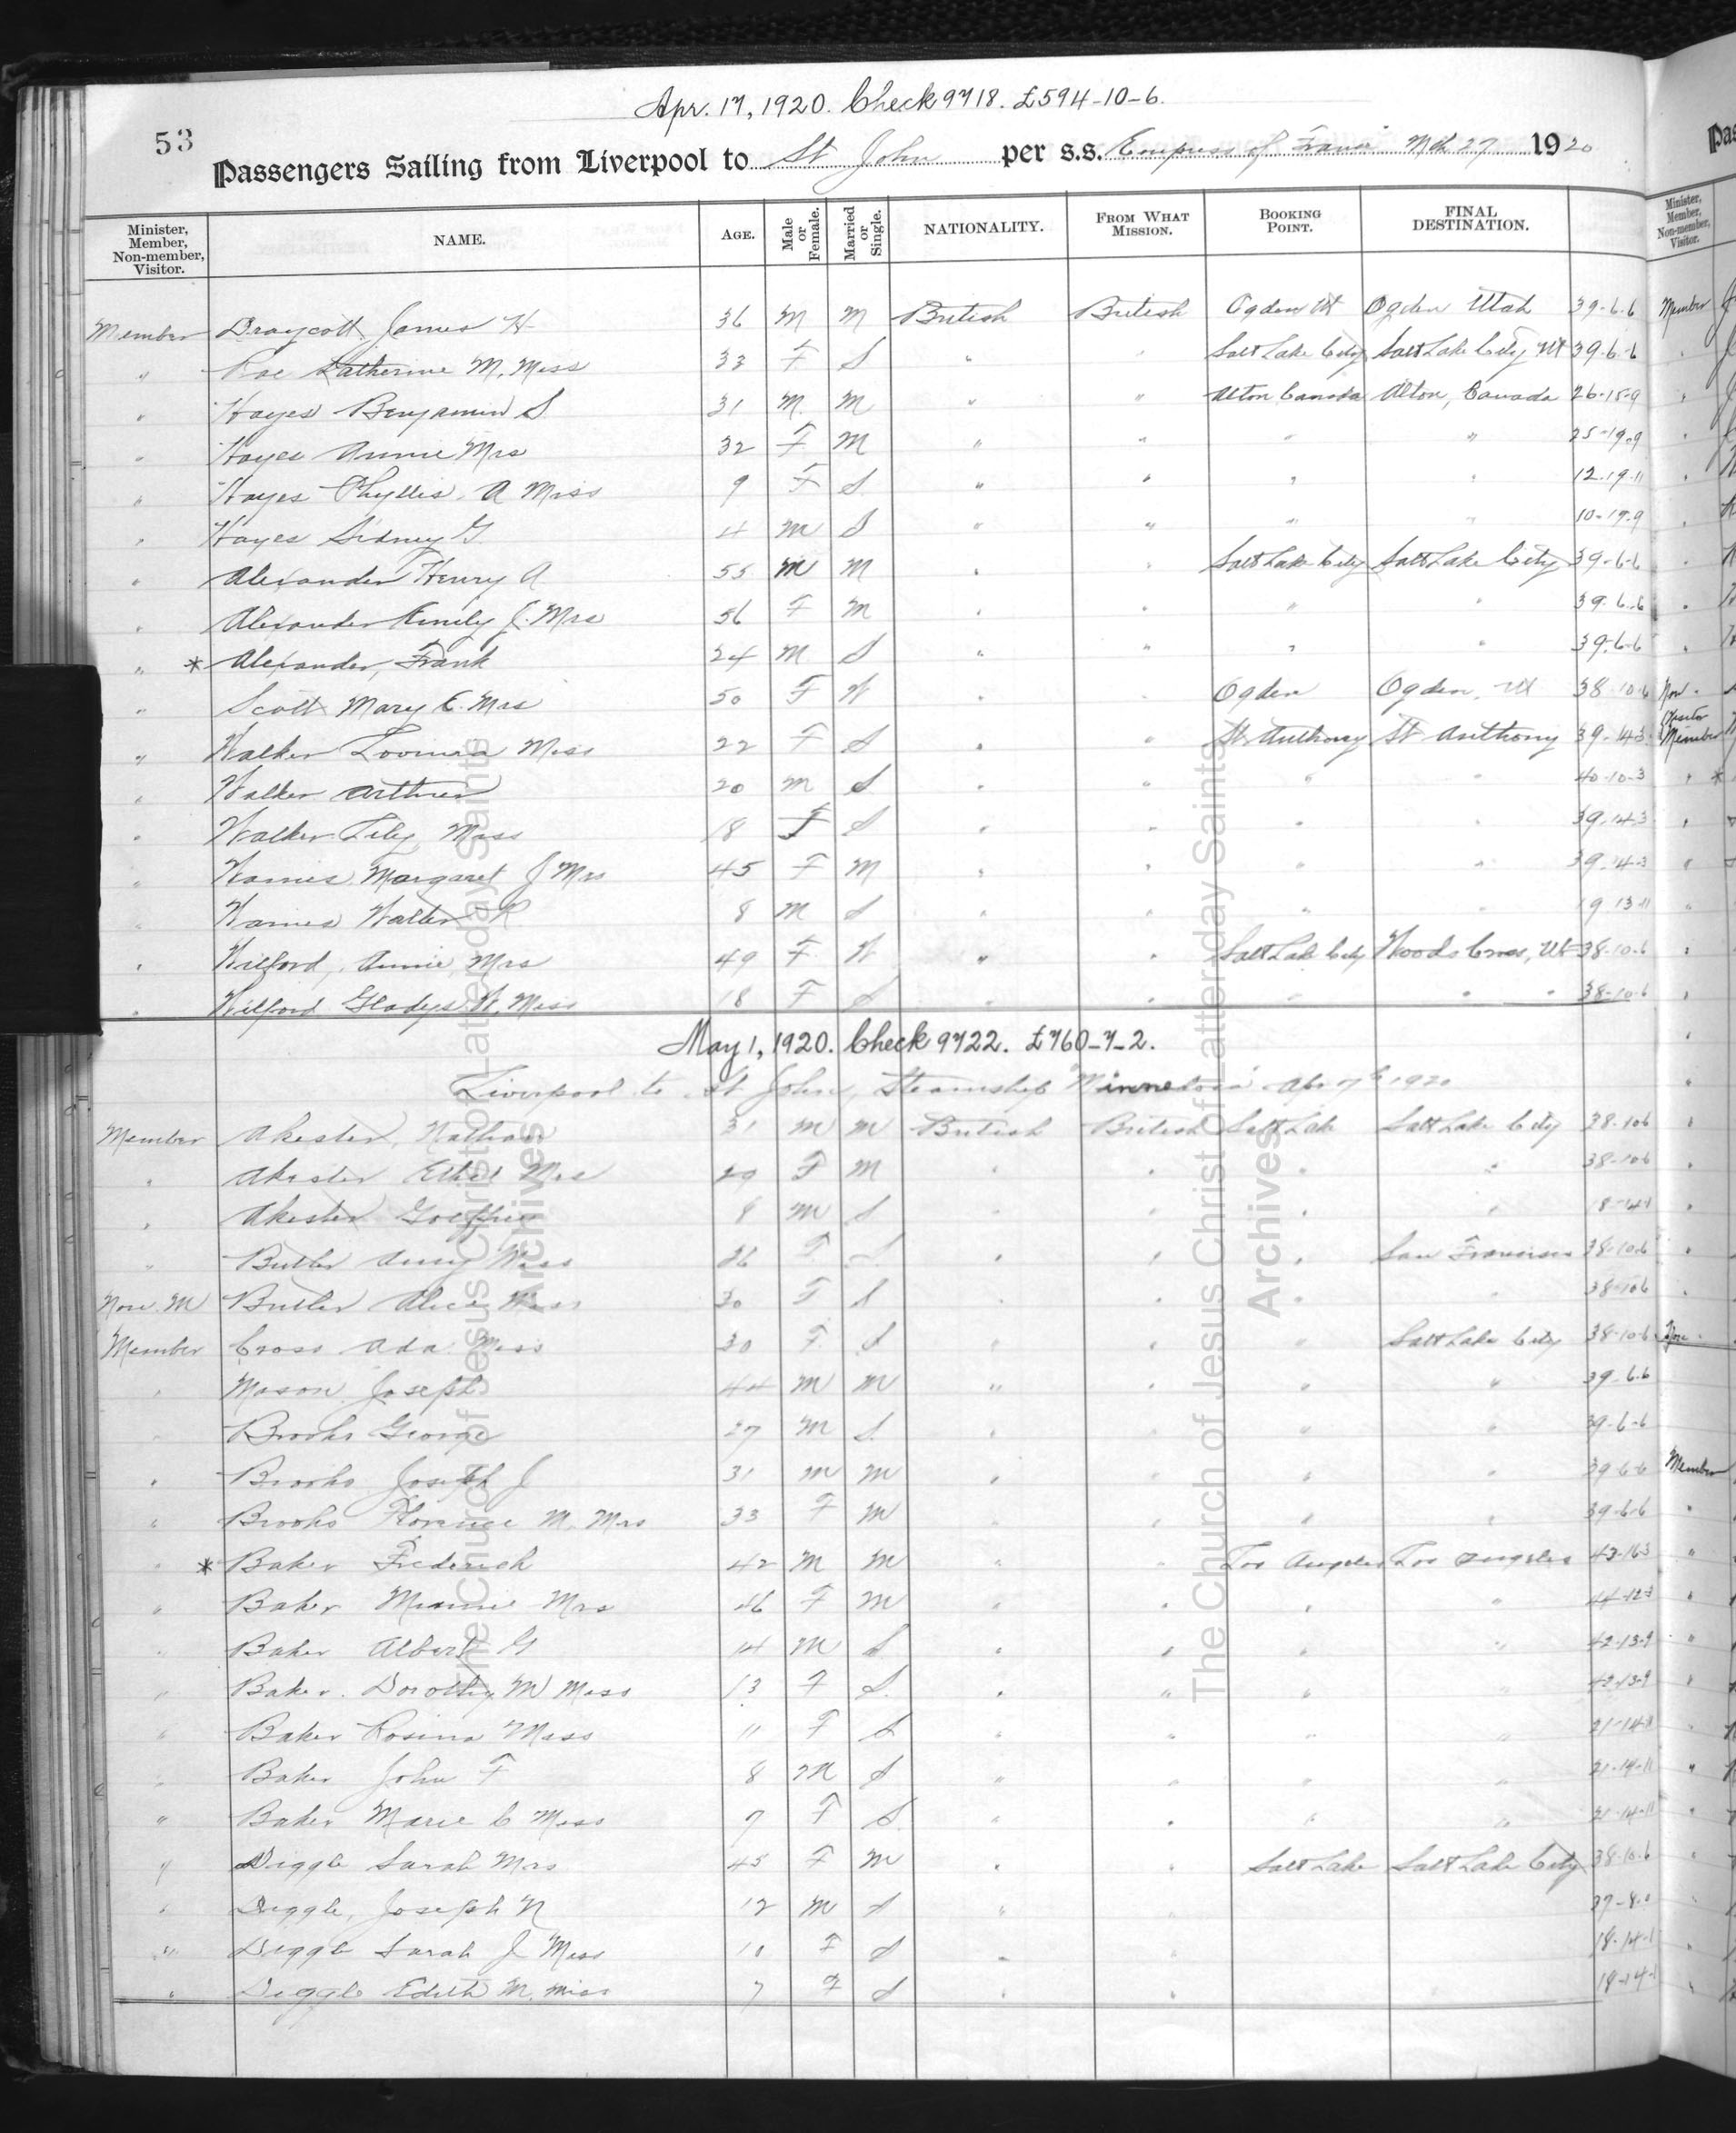 Apr. 17, 1920. Check 9718. £594-10-6.
53
Passengers Sailing from Liverpool to St John per s.s. Empress of France Mch 27 1920
Minister, Member, Non-member, Visitor. NAME. AGE. Male or Female. Married or Single. NATIONALITY. FROM WHAT MISSION. BOOKING POINT. FINAL DESTINATION.
Member Draycott James H 36 M M British British Ogden Ut Ogden Utah 39-6-6
" Rae Katherine M. Miss 33 F S " " Salt Lake City Salt Lake City Ut 39-6-6
" Hayes Benjamin S. 31 M. M " " Alton Canada Alton, Canada 26-15-9
" Hayes Annie Mrs 32 F M " " " " 25-19-9
" Hayes Phyllis. A Miss 9 F S " " " " 12-19-11
" Hayes Sidney G. 4 M S " " " " 10-19-9
" Alexander Henry A 55 M M " " Salt Lake City Salt Lake City 39-6-6
" Alexander Emily J. Mrs 56 F M " " " " 39-6-6
" * Alexander, Frank 24 M S " " " " 39-6-6
" Scott Mary E. Mrs 50 F W " " Ogden Ogden, Ut 38-10-6
" Walker Miss 22 F S " " St Anthony St Anthony 39-14-3
" Walker Arthur 20 M S " " " " 40-10-3
" Walker Lily Miss 18 F S " " " " 39-14-3
" Margaret J Mrs 45 F M " " " " 39-14-3
" Walter R. 8 M S " " " " 19-13-11
" Wilford, Annie Mrs 49 F W " " Salt Lake City Woods Cross, Ut 38-10-6
" Wilford Gladys W. Miss 18 F S " " " " 38-10-6
May 1, 1920. Check 9722. £760-7-2.
Liverpool to St John, Steamship "Minnedosa" Apr 7th 1920
Member Akester, Nathan 31 M M British British Salt Lake Salt Lake City 38-10-6
" Akester Ethel Mrs 29 F M " " " " 38-10-6
" Akester 8 M S " " " " 18-14-1
" Butler Amy Miss 26 F S " " " San Francisco 38-10-6
Non. M Butler Alice Miss 30 F S " " " " 38-10-6
Member Cross Ada Miss 30 F S " " " Salt Lake City 38-10-6
" Mason Joseph 44 M M " " " " 39-6-6
" Brooks George 27 M S. " " " " 39-6-6
" Brooks Joseph J 31 M M " " " " 39-6-6
" Brooks Florence M. Mrs 33 F M " " " " 39-6-6
" * Baker Frederick 42 M M " " Los Angeles Los Angeles 43-16-3
" Baker Minnie Mrs 46 F M " " " " 44-12-3
" Baker Albert G 14 M S " " " " 42-13-9
" Baker. Dorothy M Miss 13 F S. " " " " 42-13-9
" Baker Rosina Miss 11 F S " " " " 21-14-11
" Baker John F 8 M S " " " " 21-14-11
" Baker Marie C Miss 7 F S. " " " " 21-14-11
" Diggle Sarah Mrs 45 F M " " Salt Lake Salt Lake City 38-10-6
" Diggle, Joseph N 12 M S " " 37-8-0
" Diggle Sarah J Miss 10 F S " " 18-14-1
" Diggle Edith M. Miss 7 F S " " 18-14-1
The Church of Jesus Christ of Latter-day Saints
Archives
The Church of Jesus Christ of Latter-day Saints
Archives
Minister, Member, Non-member, Visitor.
Member
Non.
Visitor
Member
Member